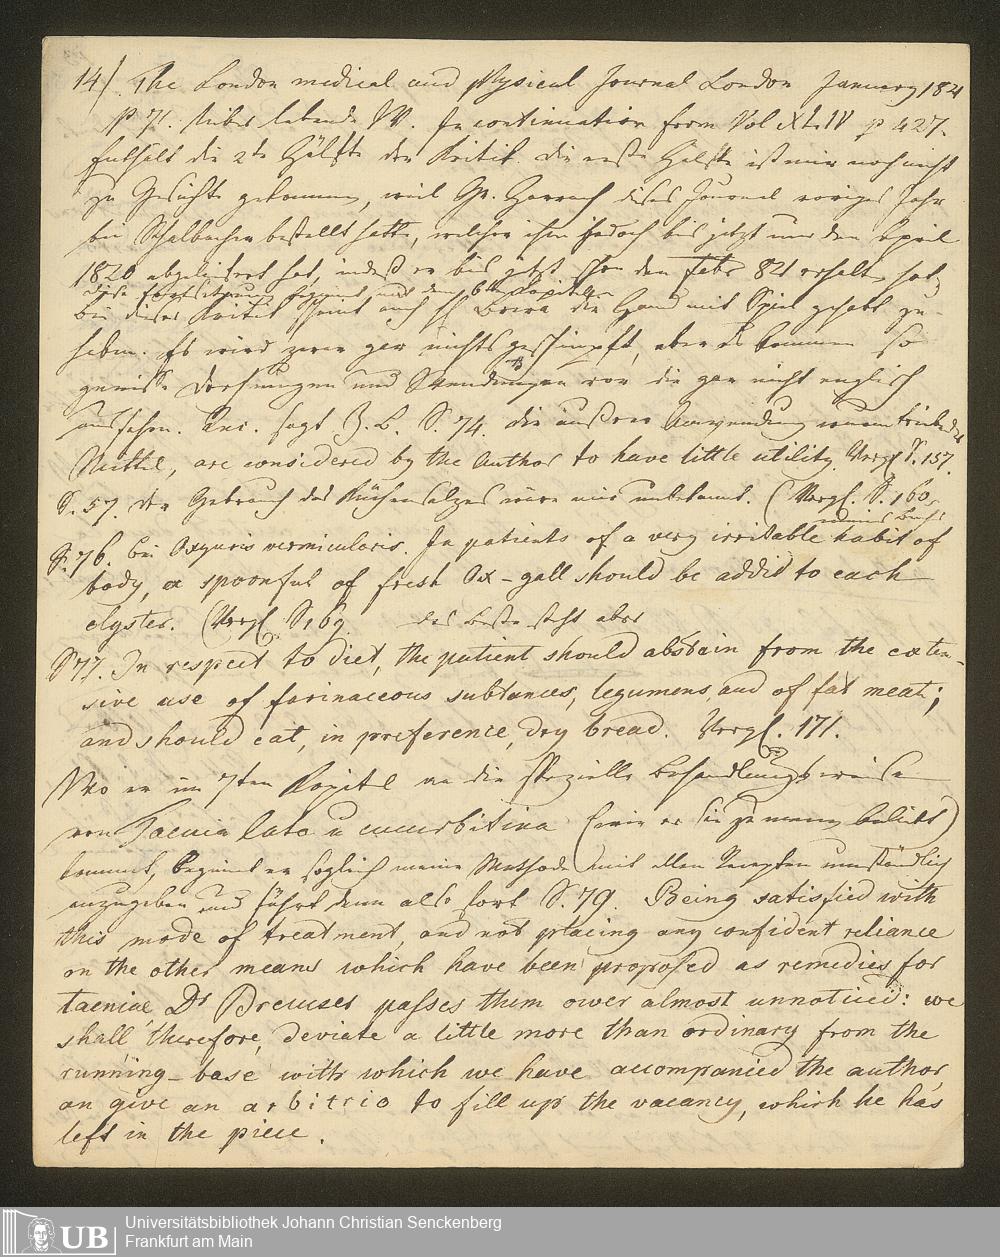 14/ The London medical and physical Journal London January 1821
p 71. über lebende W. In continuation from Vol XLIV p 427.
Enthält die 2te Hälfte der Kritik. die erste Hälfte ist mir noch nicht
zu Gesicht gekommen, weil Gr. Harrach dieses Journal voriges Jahr
bei Schalbacher bestellt hatte, welcher ihm jedoch bis jetzt nur den April
1820 abgeliefert hat, indeß er bis jetzt schon den Febr 821 erhalten hat
diese Fortsetzung beginnt mit dem 6ten Kapitel
bei dieser Kritik scheint auch H Brera die Hand mit Spiel gehabt zu
haben. Es wird zwar gar nichts geschimpft, aber es kommen so
gewisse Drehungen und Wendungen vor die gar nicht englisch
aussehen. Rec. sagt z. B. S. 74. die äußere Anwendung wurmtreibender
Mittel, are considered by the Author to have little utility. Vergl S. 157.
S. 57. der Gebrauch des Küchensalzes wäre mir unbekannt. (Vergl. S. 160.
meines Buchs
S. 76. bei Oxyuris vermicularis. In patients of a very irritable habit of
body, a spoonful of fresh Ox-gall should be addid to each
clyster. (Vergl. S. 169 das Beste steht aber
S 77. In respect to diet, the patient should abstain from the exten-
sive use of farinaceous substances, legumens, and of fat meat;
and should eat, in preference, dry bread. Vergl. 171.
Wo er im 7ten Kapitel an die spezielle Behandlungsweise
von Taenia lata u cucurbitina (wie er sie zu nennen beliebt)
kommt, beginnt er sogleich meine Methode mit allen Recepten umständlich
anzugeben und fährt dann also fort S. 79. Being satisfied with
this mode of treatment, and not placing any confident reliance
on the other means which have been proposed as remedies for
taeniae Dr Bremser passes them over almost unnoticed: we
shall therefore, deviate a little more than ordinary from the
running-base with which we have accompanied the author,
an give an arbitrio to fill up the vacancy, which he has
left in the piece.
Universitätsbibliothek Johann Christian Senckenberg
Frankfurt am Main
UB